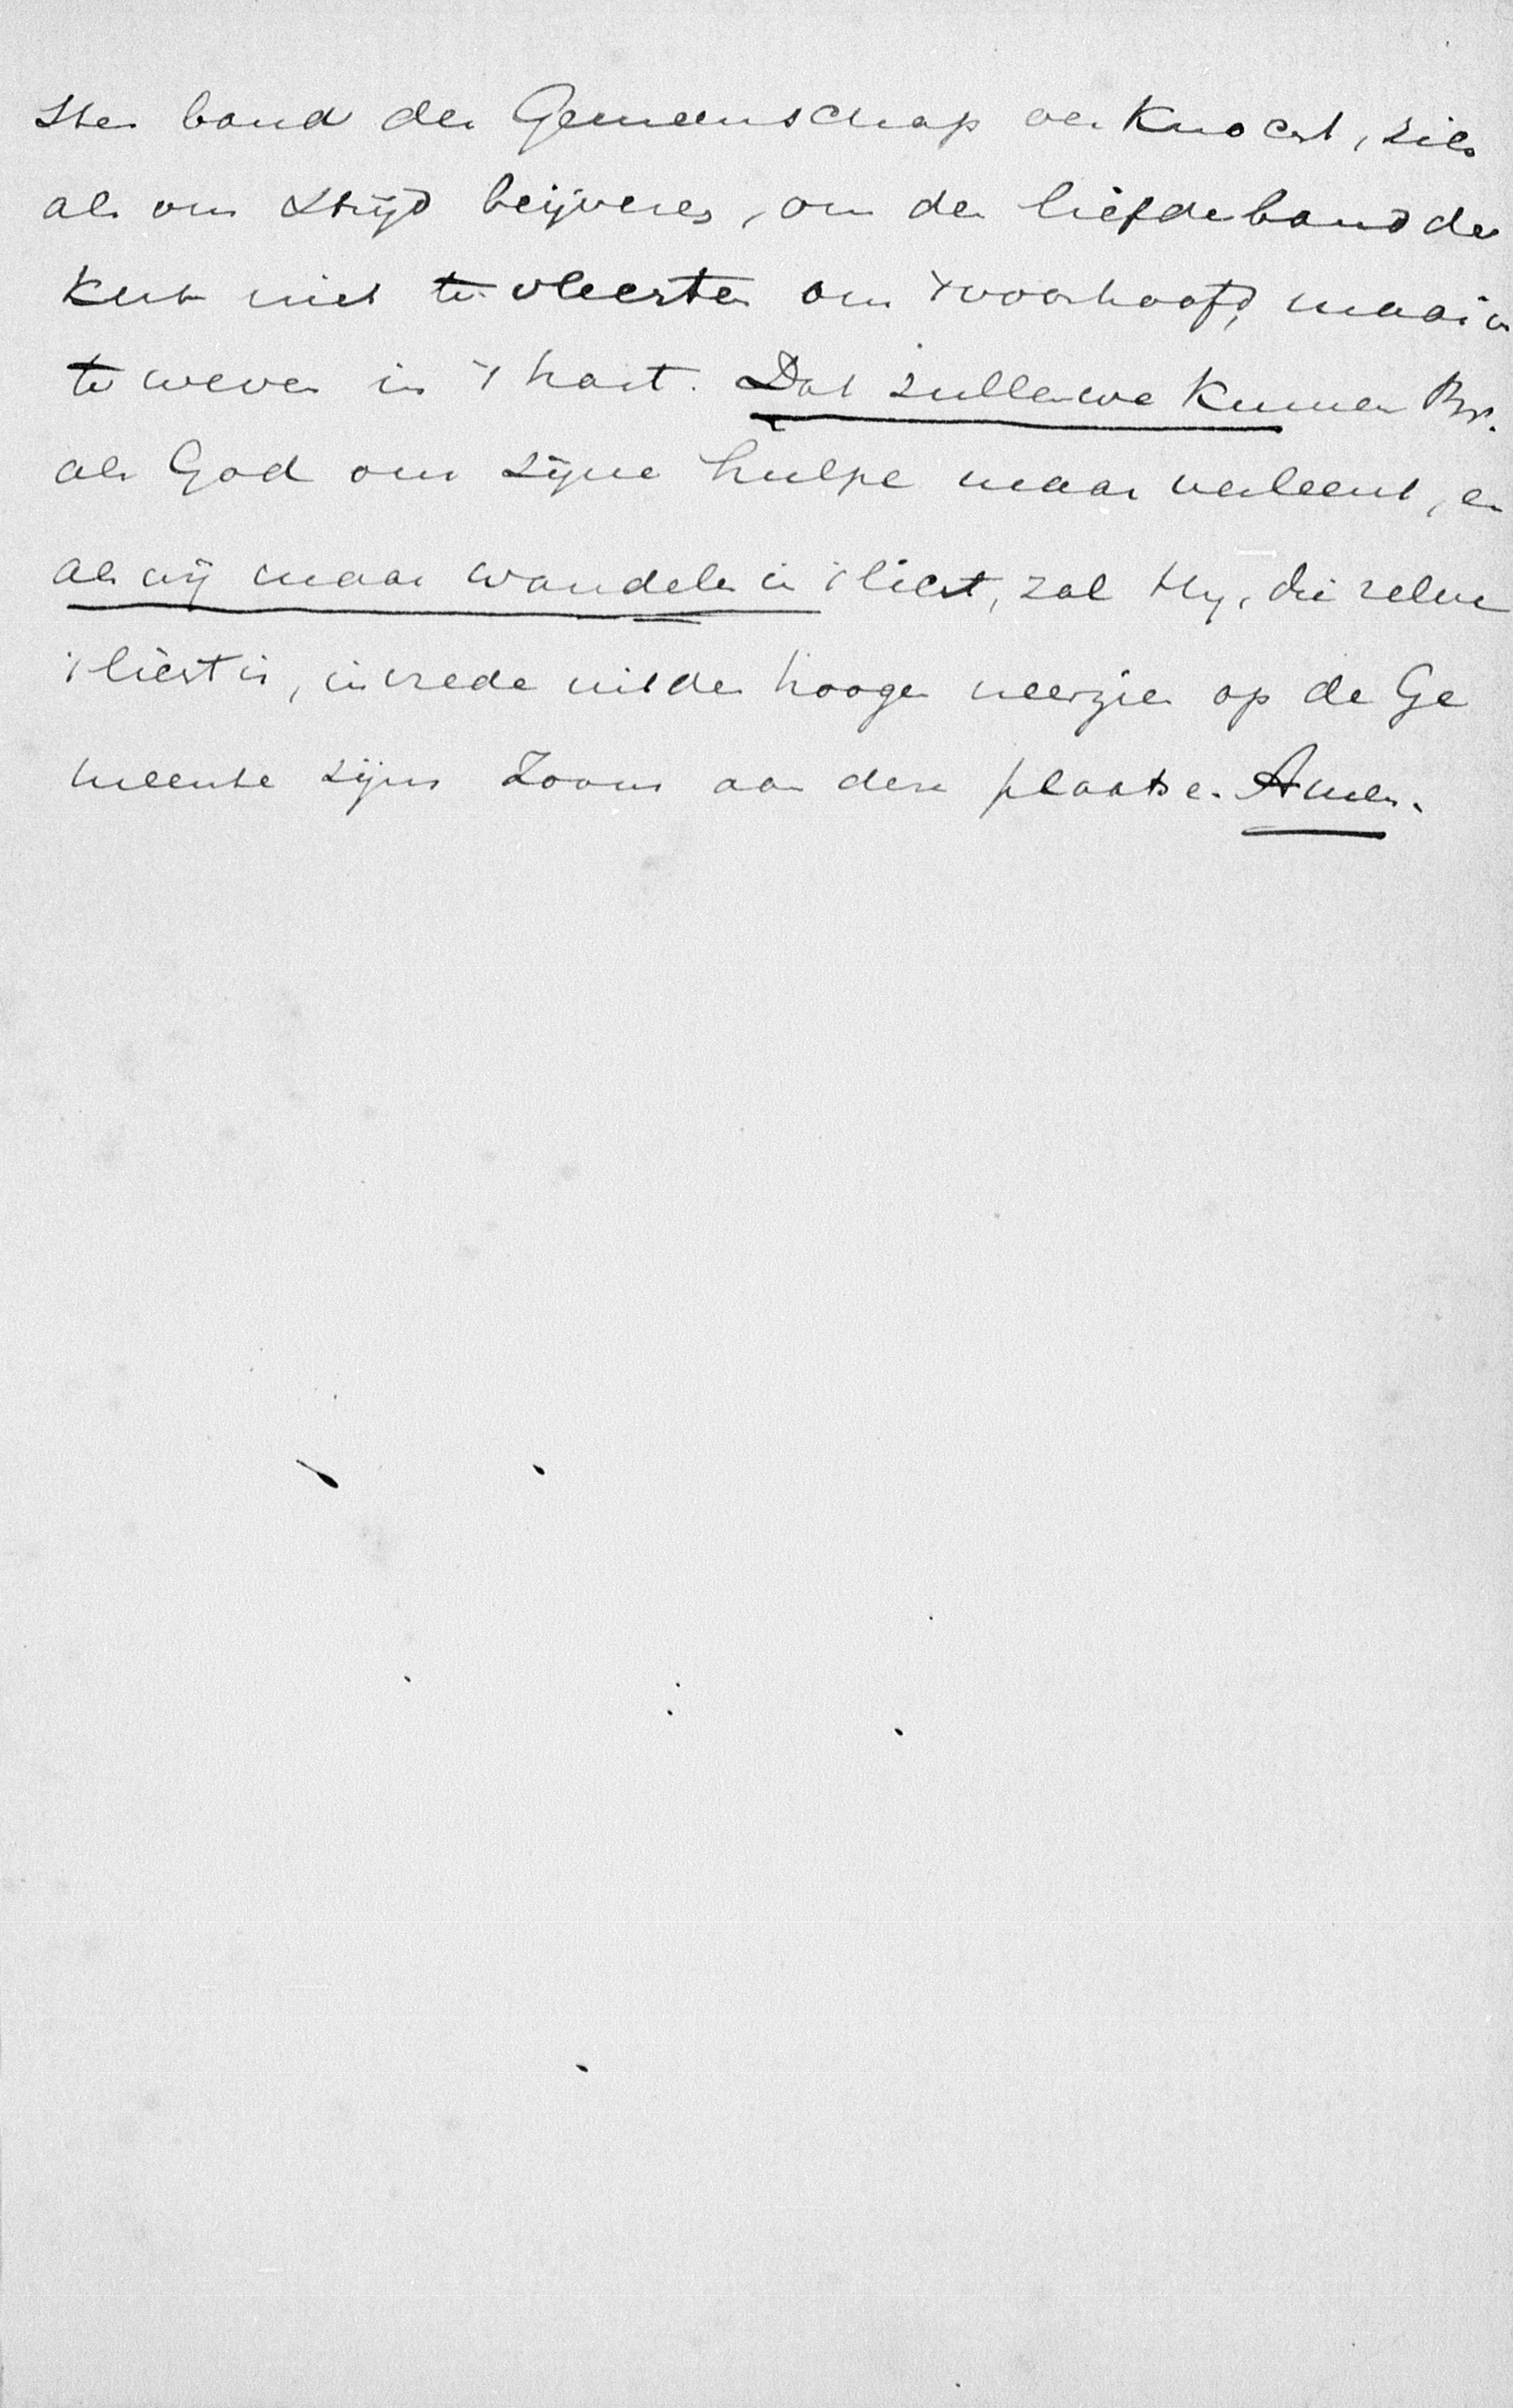 sten band der Gemeenschap verknocht, zich
als om strijd beijveren, om den liefdeband der
Kerk niet te vlechten om 't voorhoofd, maar in
te weven in 't hart. Dat zullen we kunnen Br.
als God ons zijne hulpe maar verleent, en
als wij maar wandelen in 't licht, zal Hij, die zelve
't licht is, in vrede uit den hoogen neerzien op de Ge
meente zijns Zoons aan deze plaatse. Amen.